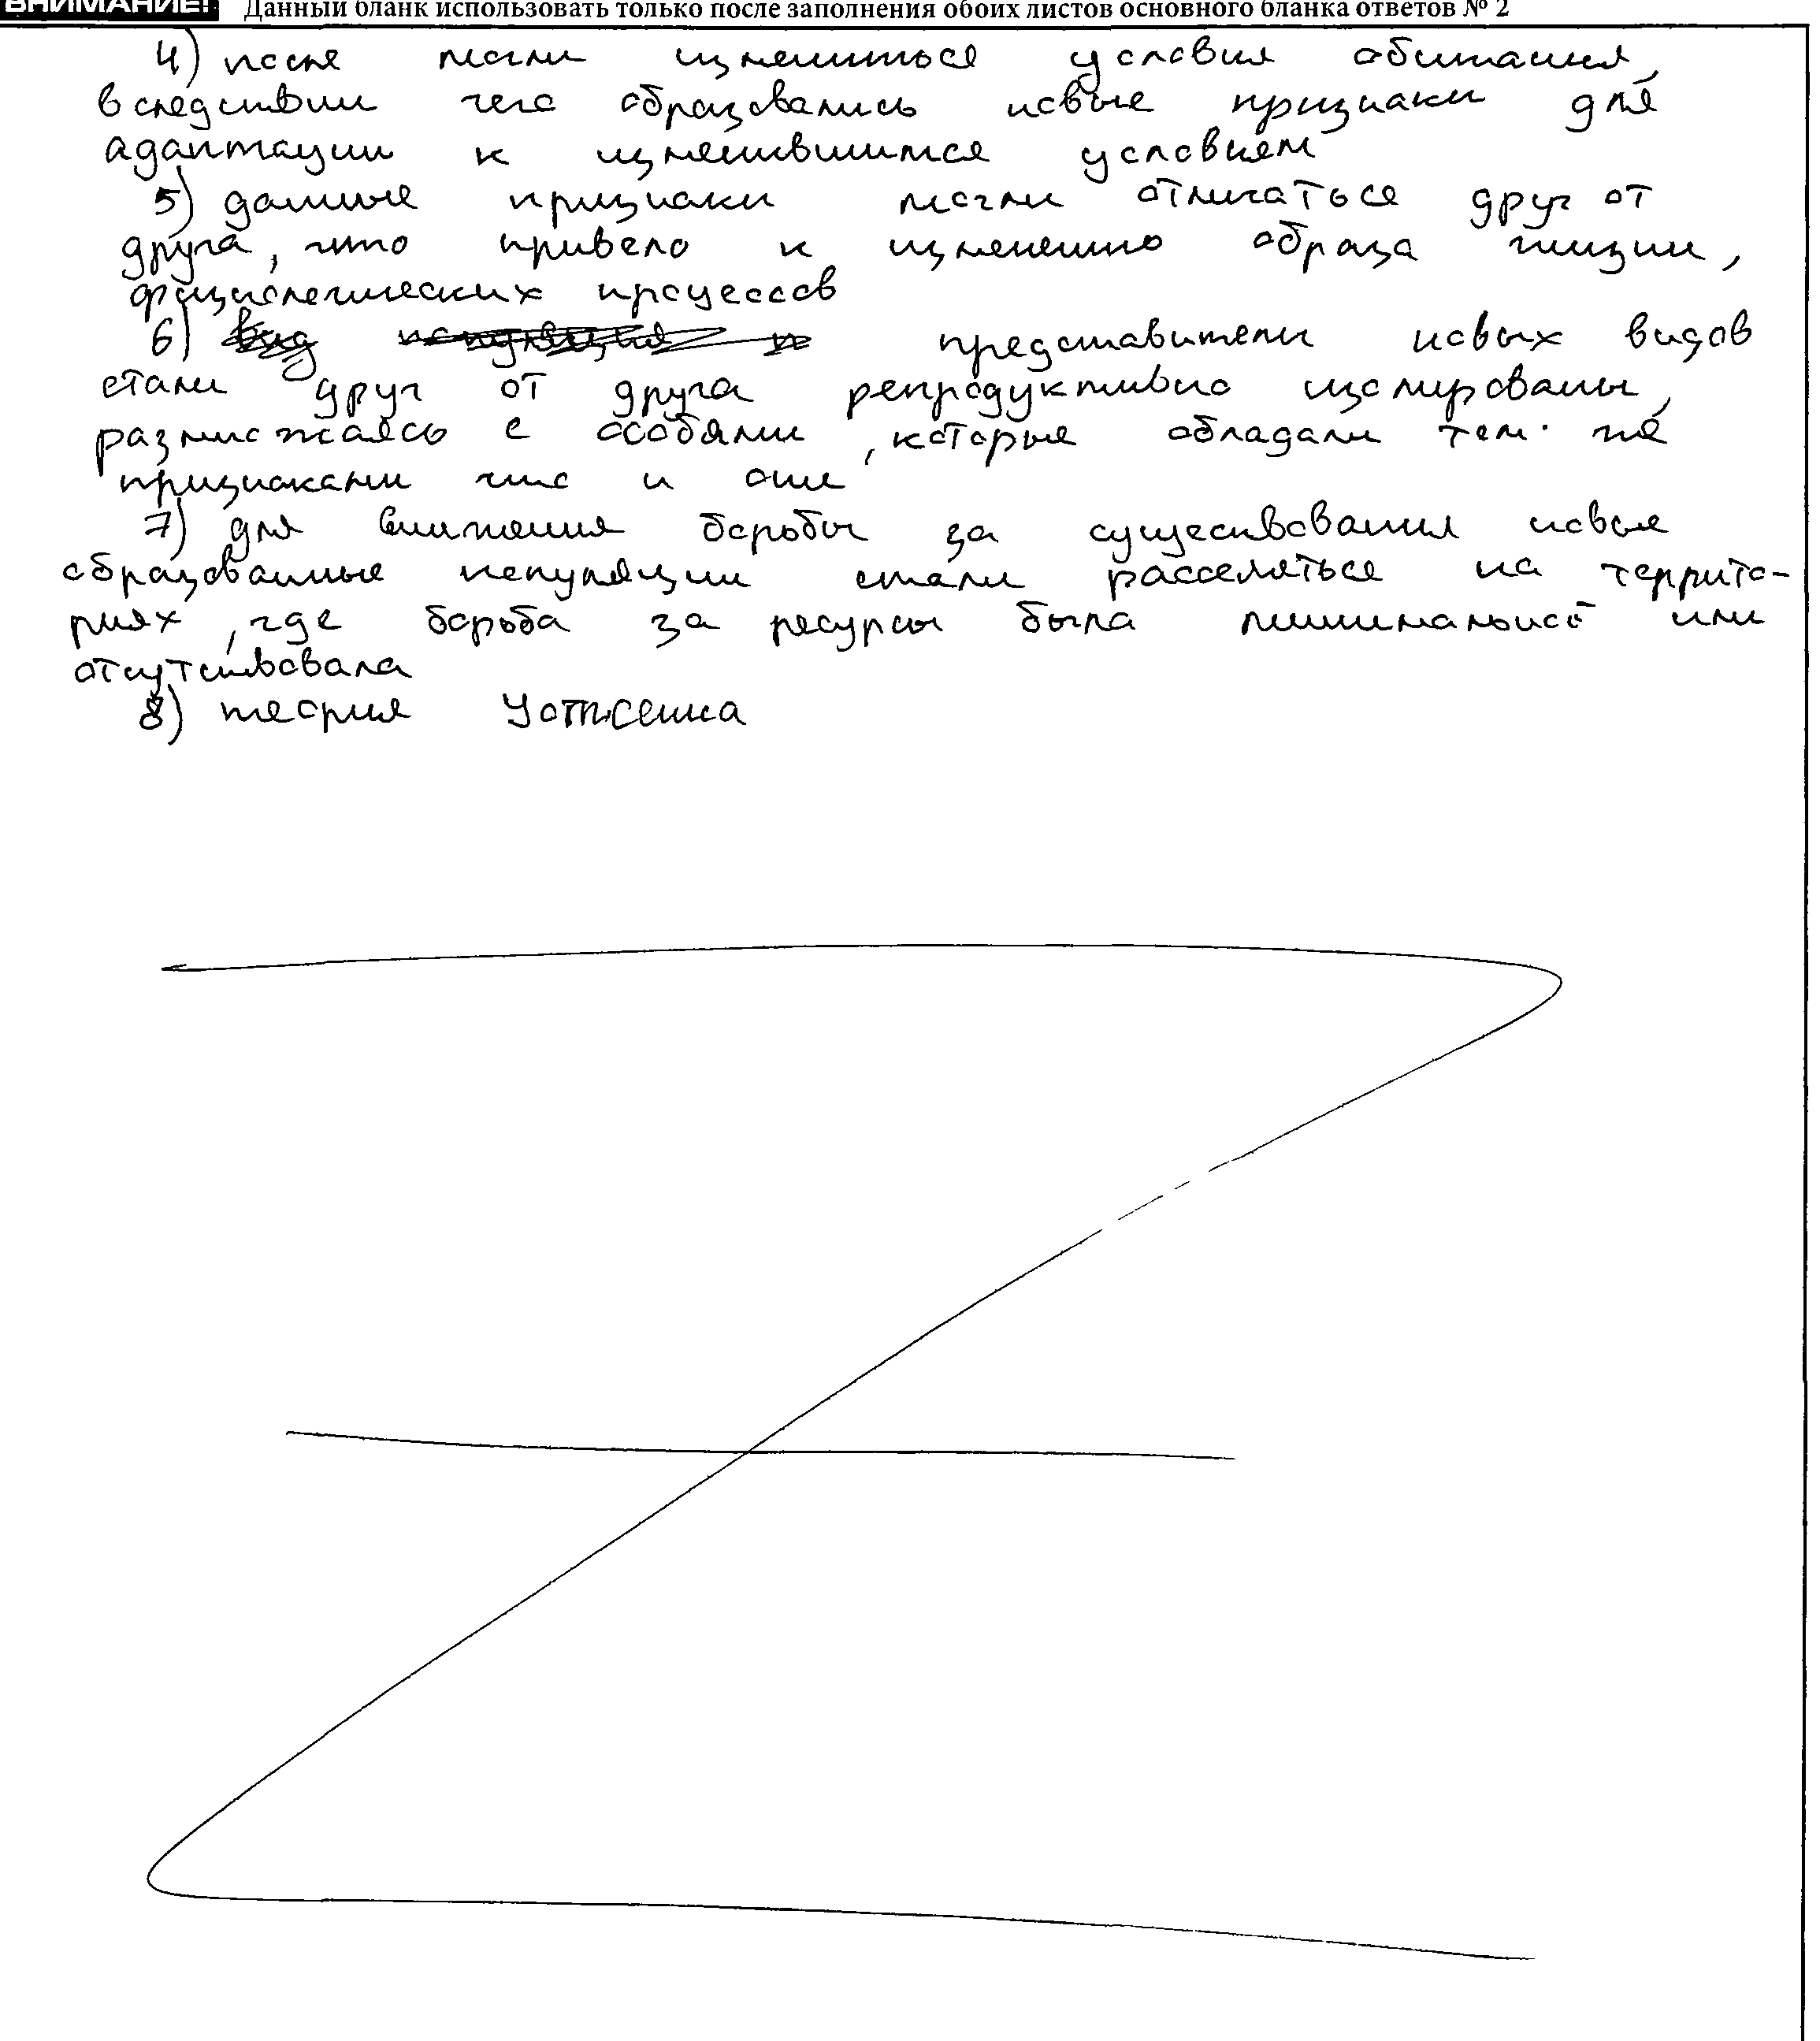 ВНИМАНИЕ! Данный бланк использовать только после заполнения обоих листов основного бланка ответов № 2
4) после могли измениться условия обитания,
вследствии чего образовались новые признаки для
адаптации к изменившимся условиям
5) данные признаки могли отличаться друг от
друга, что привело к изменению образа жизни,
физиологических процессов
6) представители новых видов
стали друг от друга репродуктивно изолированы,
размножаясь с особями, которые обладали теми же
признаками что и они
7) для снижения борьбы за существования новые
образованные популяции стали расселяться на террито-
риях, где борьба за ресурсы была минимальной или
отсутствовала
8) теория Уотисенна